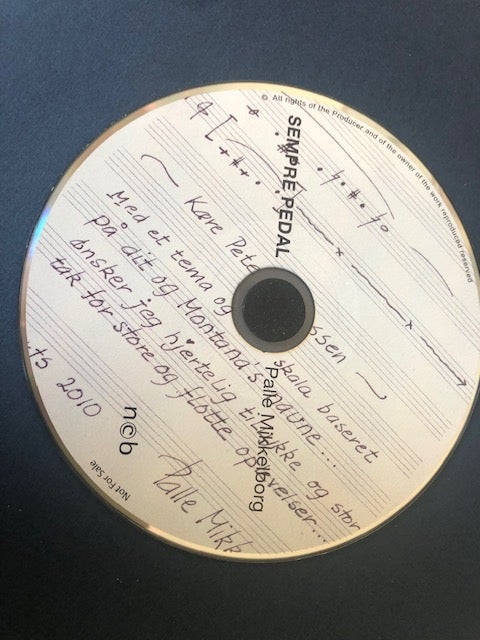 © All rights of the Producer and of the owner of the work reproduced reserved
SEMPRE PEDAL
Palle Mikkelborg
Kære Pete ssen
Med et tema og skala baseret
på dit og Montana's navne...
ønsker jeg hjertelig tillykke og stor
tak for store og flotte oplevelser...
Palle Mikk
ts 2010
n©b
Not For Sale